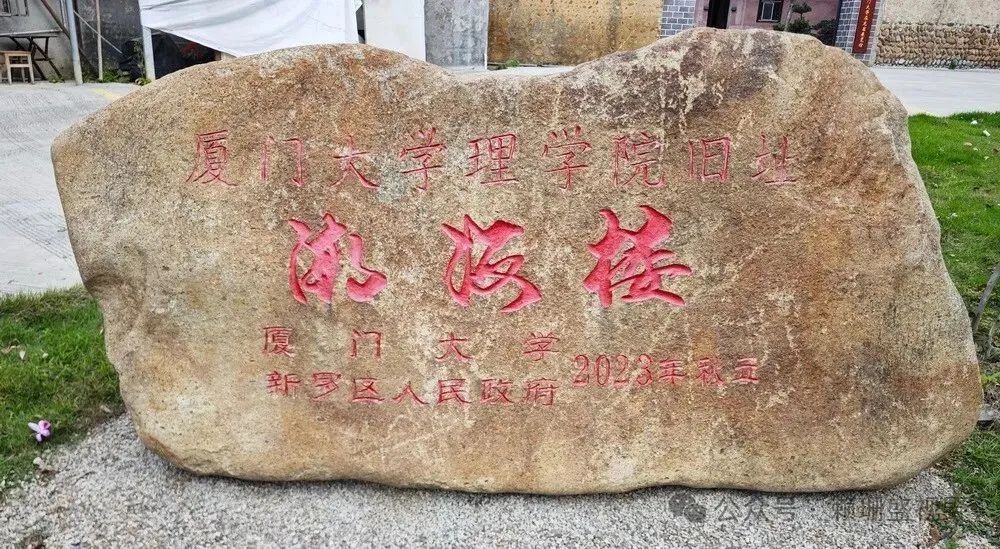 厦门大学理学院旧址
渤海楼
厦门大学
新罗区人民政府 2023年秋立
公众号